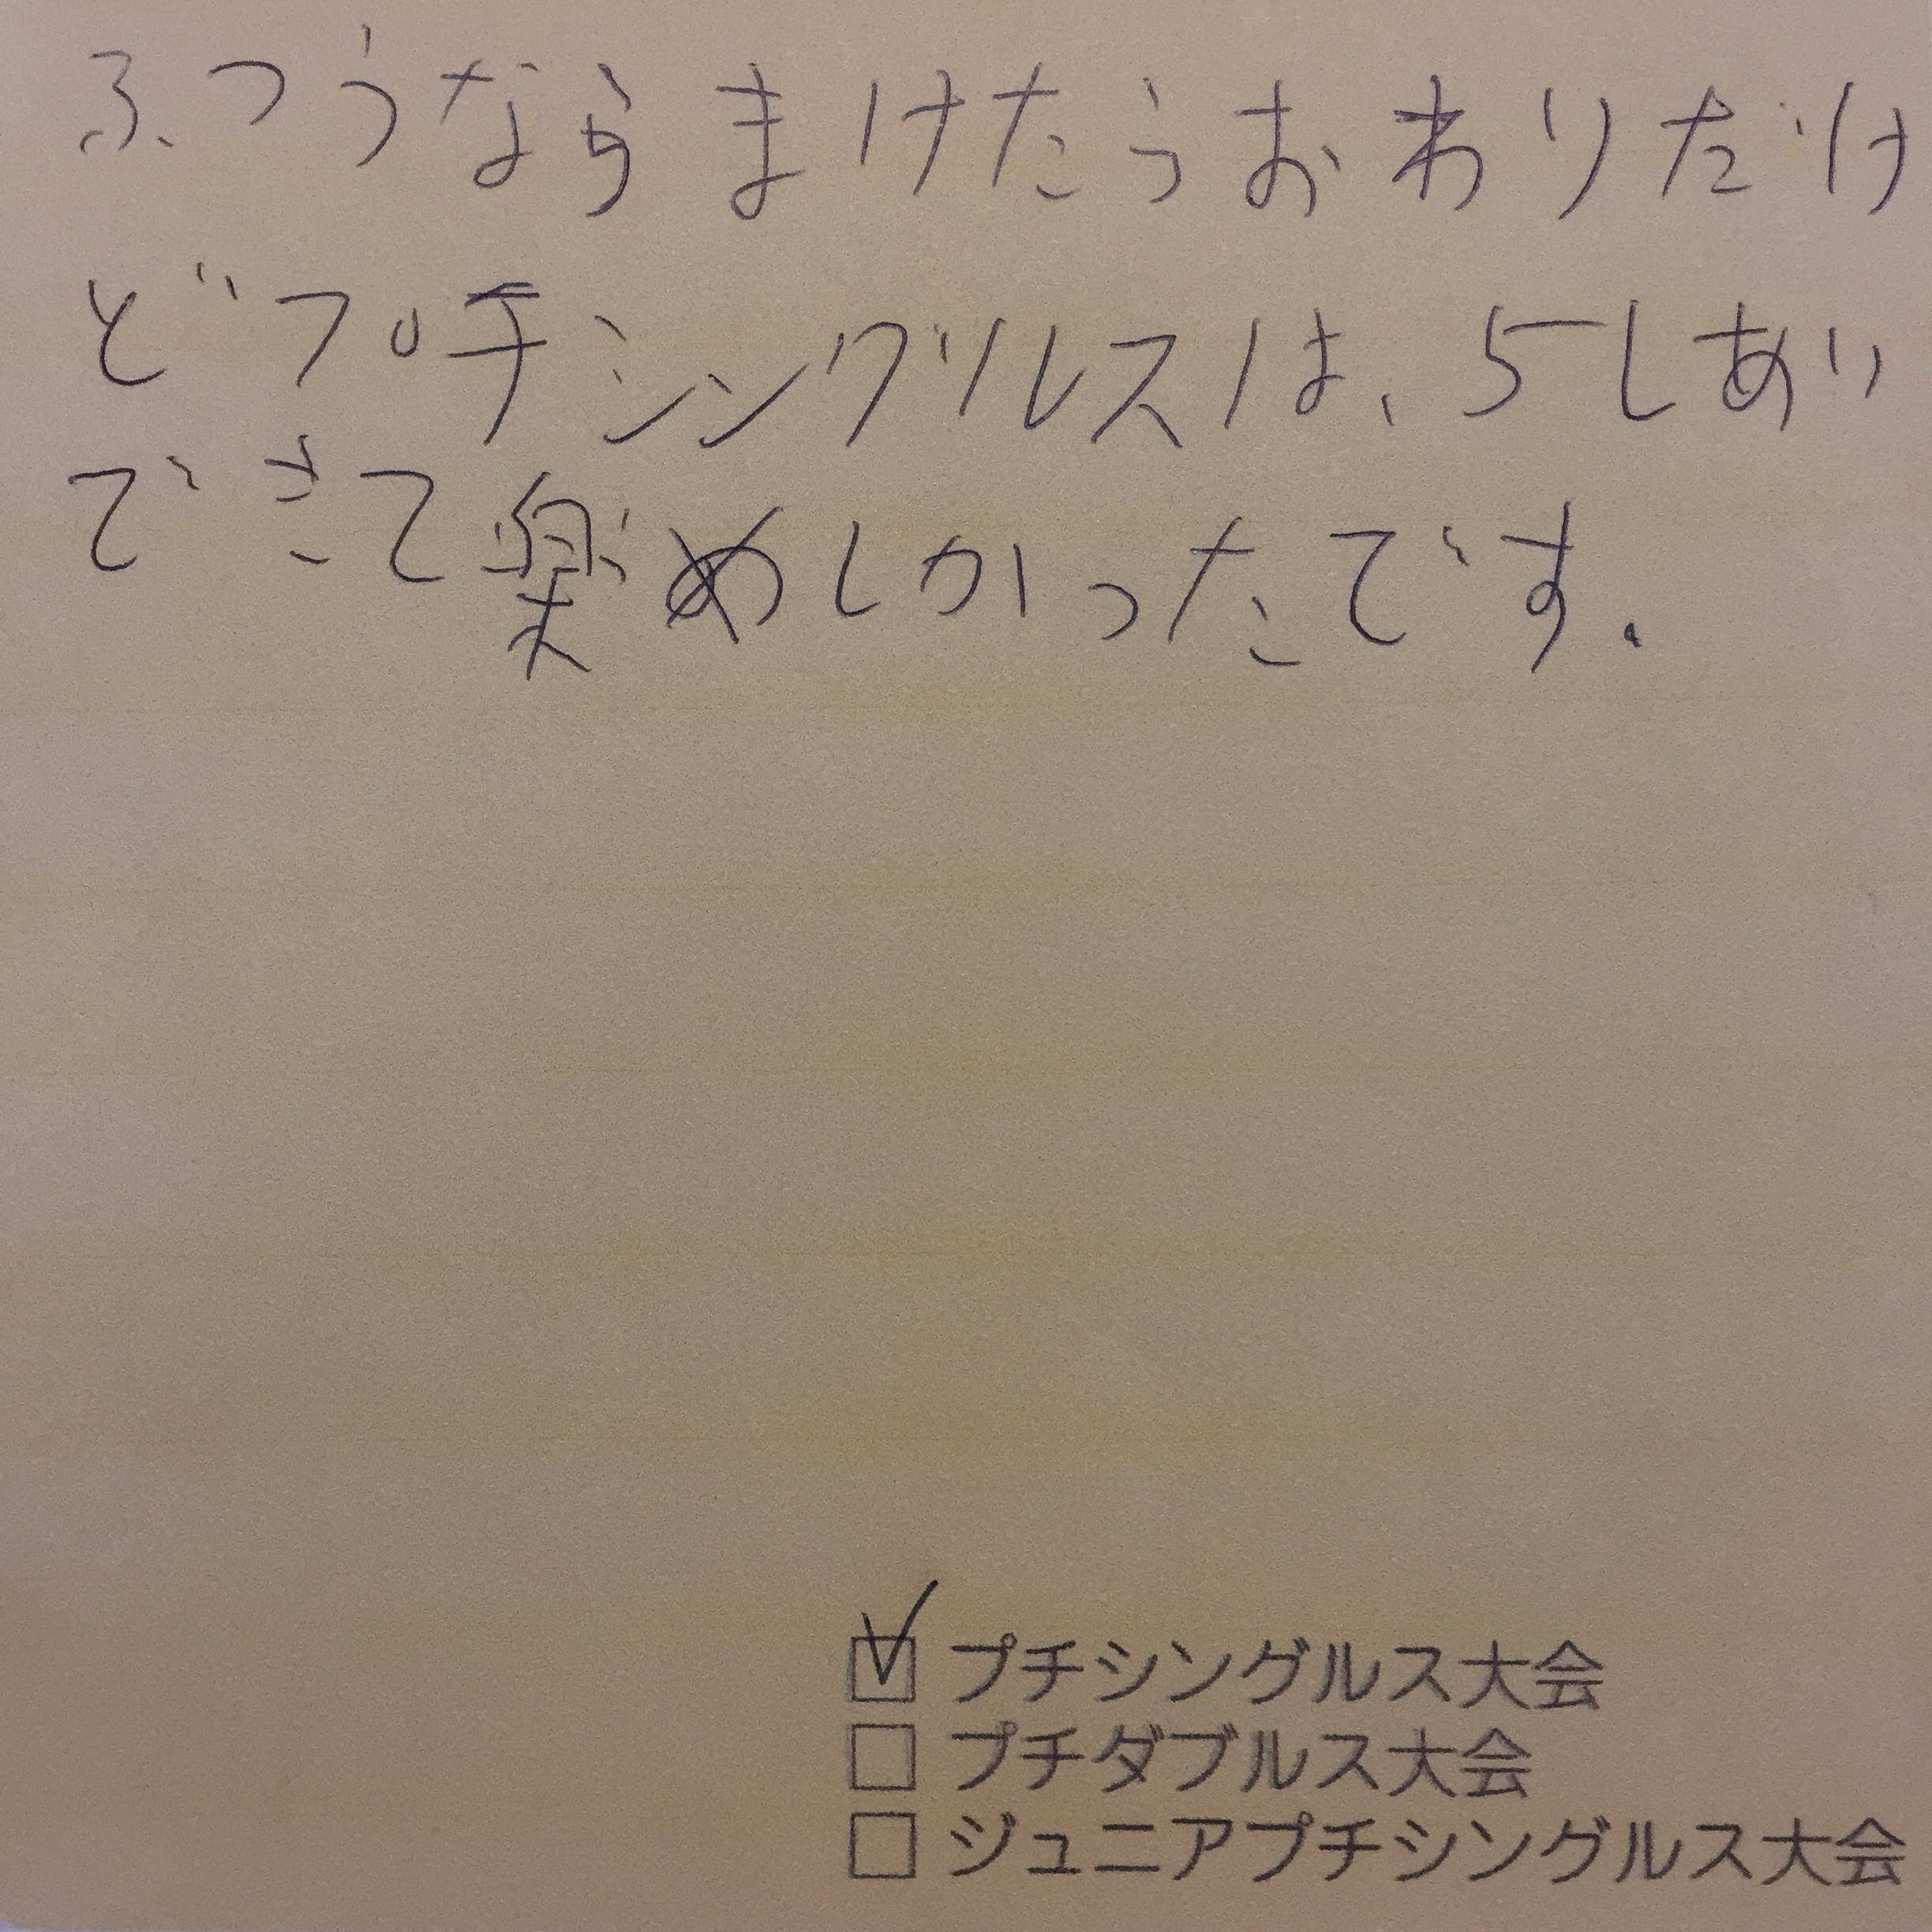 ふつうならまけたらおわりだけ
どプチシングルスは、5しあい
できて楽しかったです。
☑ プチシングルス大会
☐ プチダブルス大会
☐ ジュニアプチシングルス大会